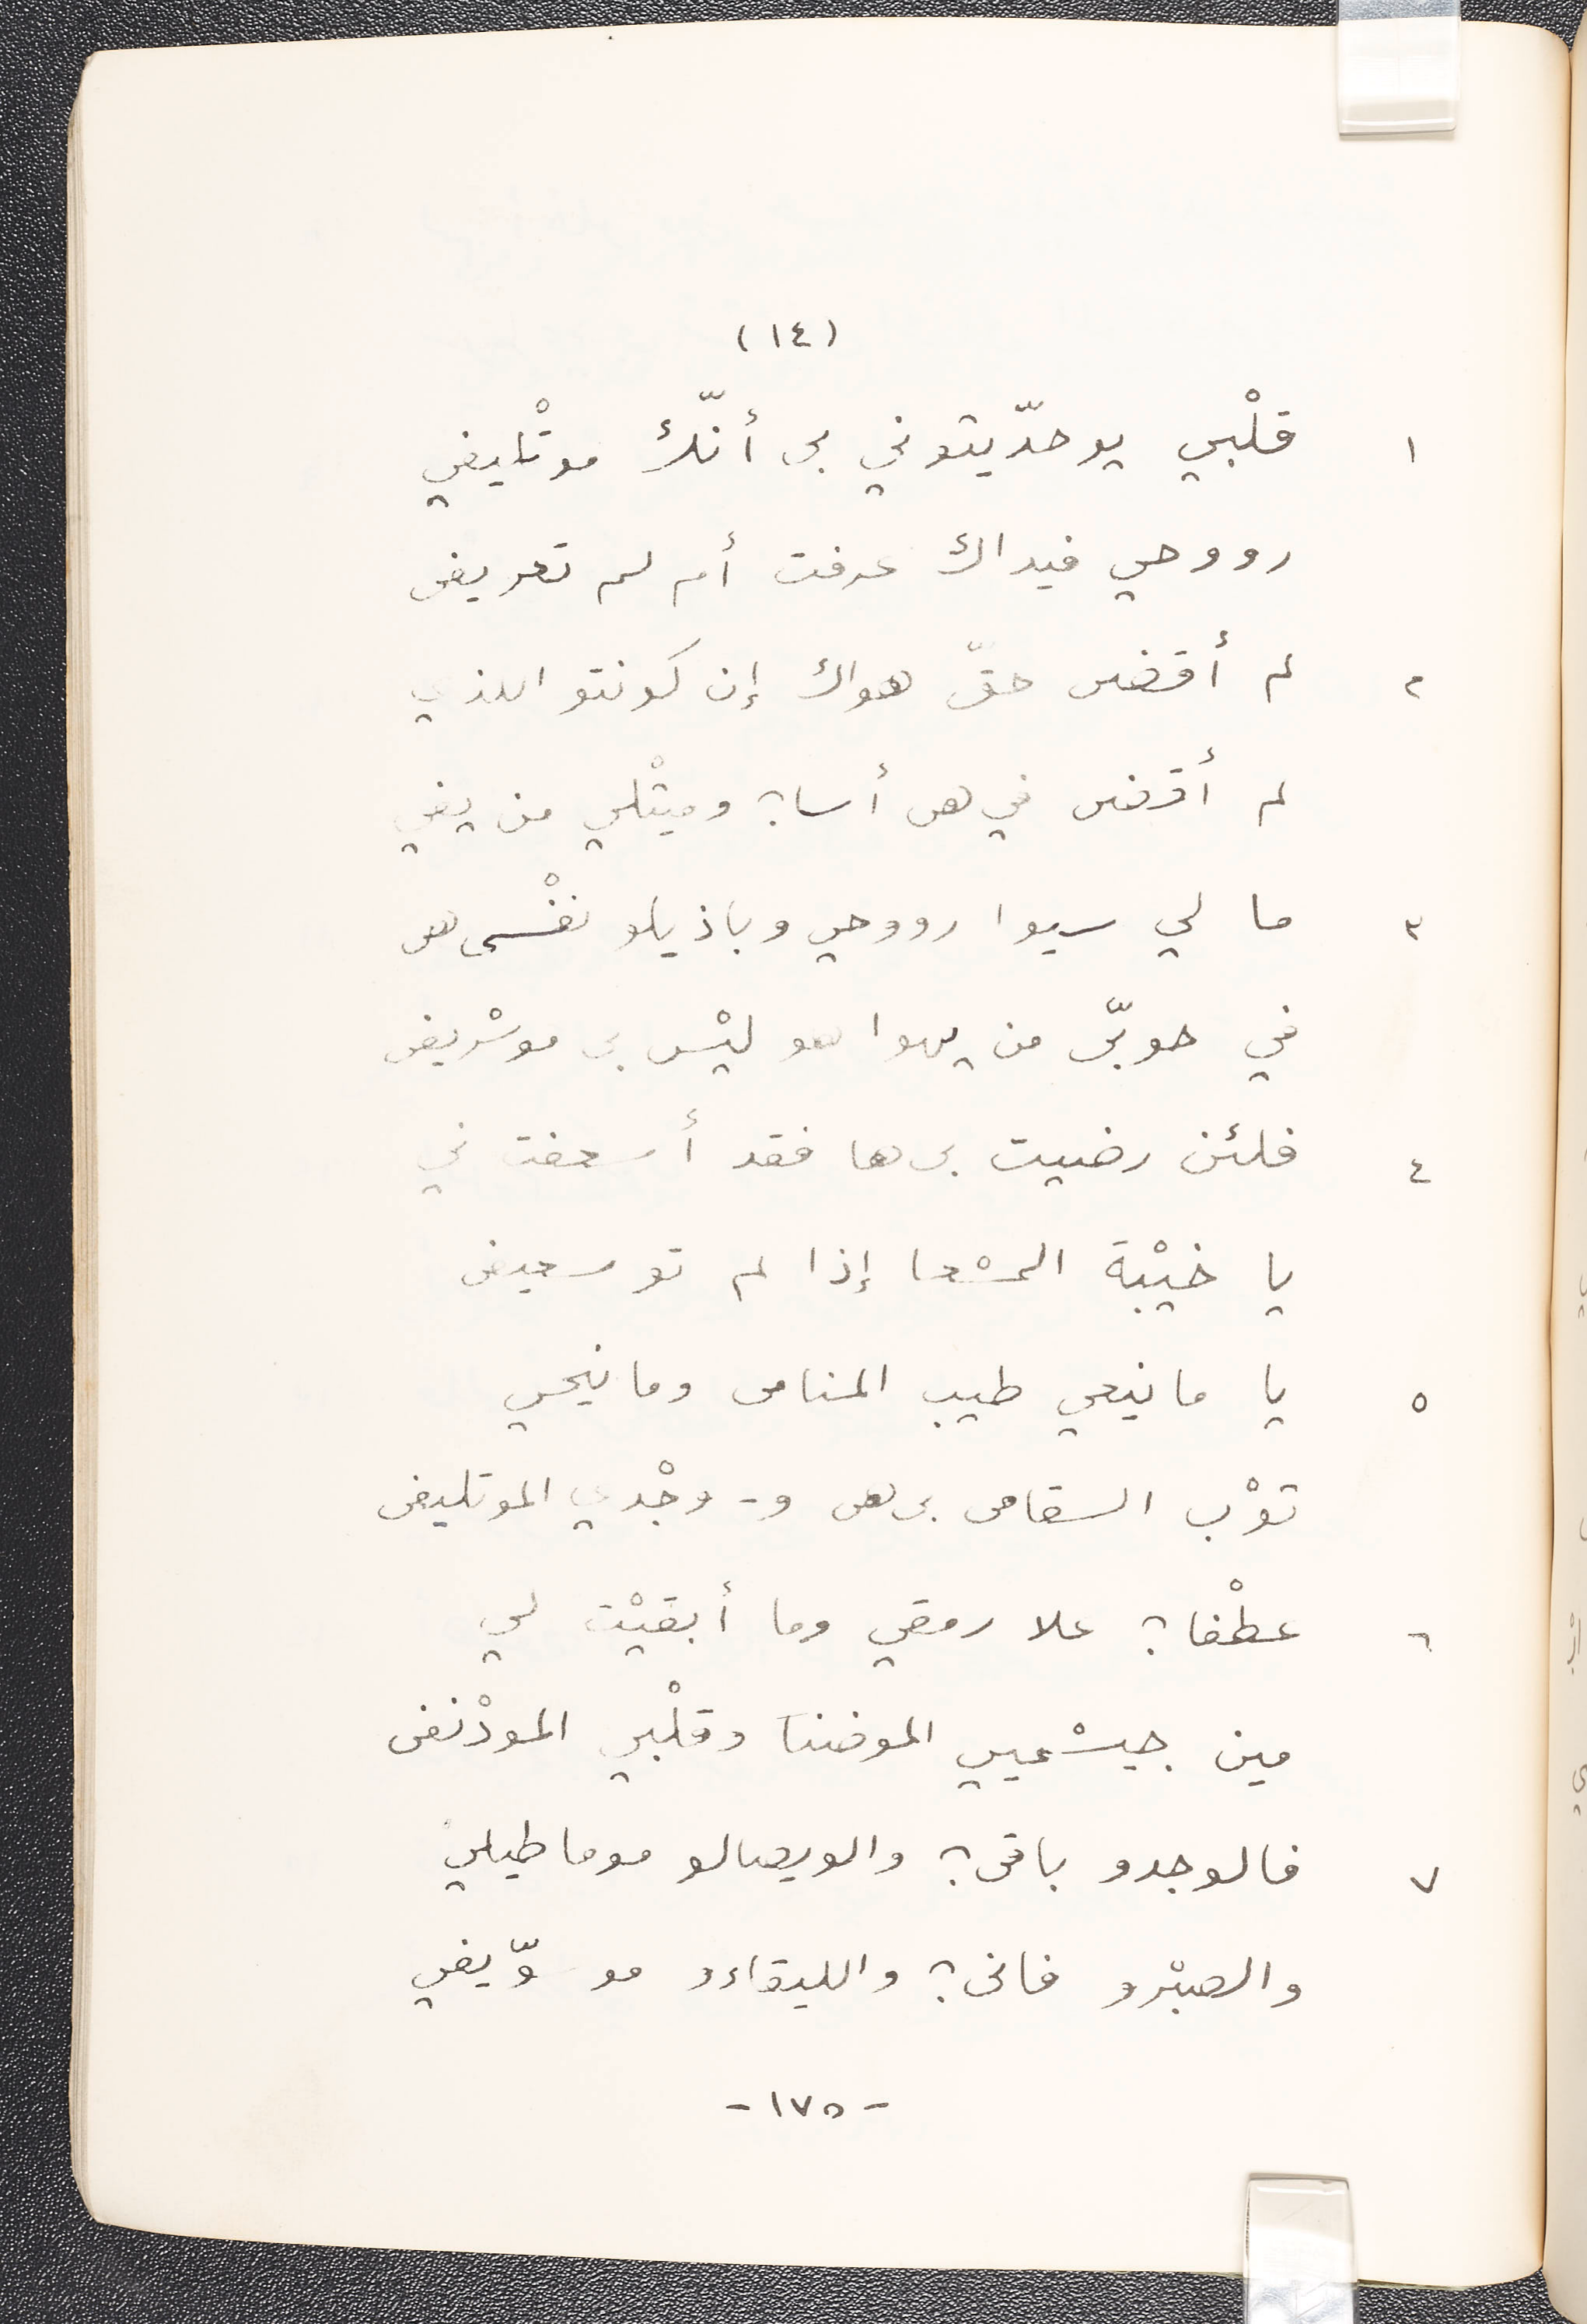 (١٤)
١ قلْبي يوحدّيتوني بى أنّك موتْليفي
رووحي فيداك عرفت أم لم تعريفى
٢ لم أقضى حقّ هواك إن كونتو اللذي
لم أقضى في هى أسا؟ وميتْلي من يفي
٣ ما لي سيوا رووحي وباذيلو نفْسى هى
في حوبّى من يهوا هو ليْس بى موسْريفى
٤ فلئن رضيت بى ها فقد أسعفت ني
يا خيْبة المسْعا إذا لم توسعيفى
٥ يا مانيعي طيب المنامى ومانيحي
توْب السقامى بى هى و- وجْدي الموتليفى
٦ عطْفا؟ علا رمقي وما أبقيْت لي
مين جيسْميي الموضنا وقلْبي المودْنفى
٧ فالوجدو باقى؟ والويصالو موماطيلي
والصبْرو فانى؟ والليقاءو موسوّيفي
-١٧٥-